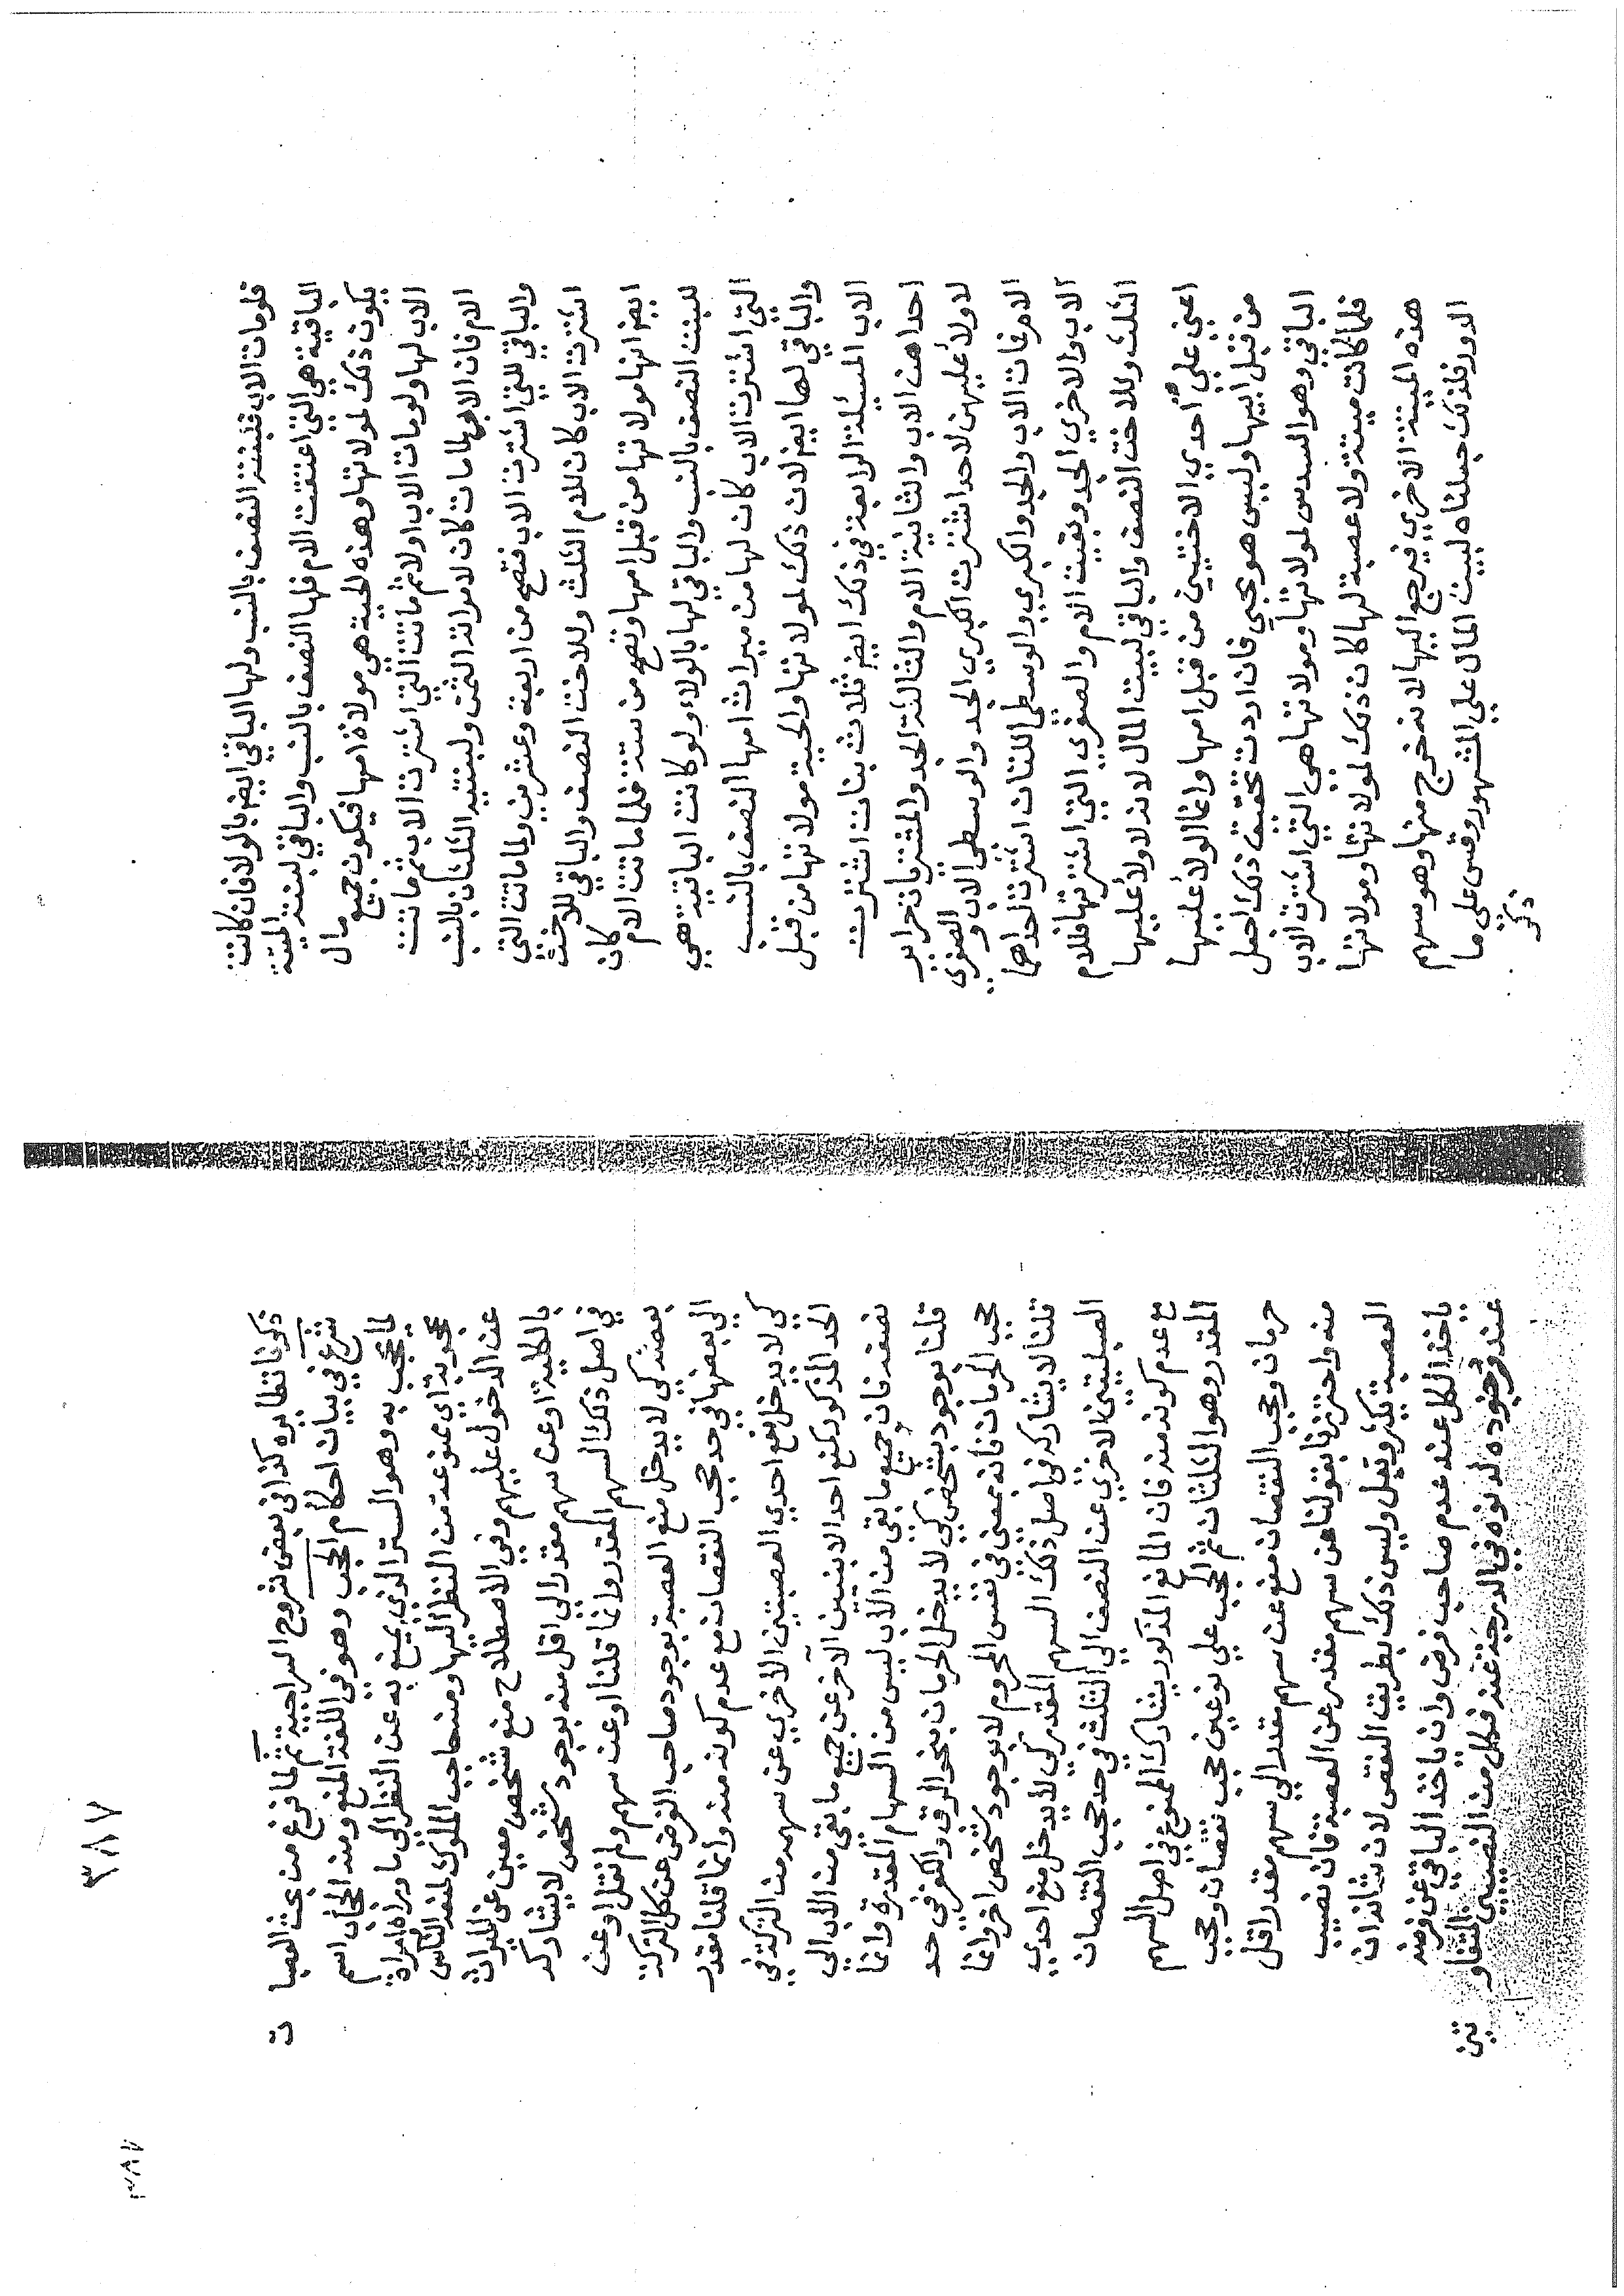 فلو مات الاب فلبنته النصف بالنسب ولها الباقي ايضا بالولا فان كانت
الباقية هي التي اعتقت الام فلها النصف بالنسب والباقي لبنته الميتة
يكون ذلك لمولاتها وهذه الحية هي مولاة امها فيكون جميع مال
الاب لها ولو مات الاب اولا ثم ماتت التي اشترت الاب ثم ماتت
الام فان الاب لما مات كان لامراته الثمن ولبنتيه الثلثان بالنسب
والباقي للتي اشترت الاب فتصح من اربعة وعشرين ولما ماتت التي
اشترت الاب كان للام الثلث وللاخت النصف والباقي للاخت
ايضا انها مولاتها من قبل امها وتصح من ستة فلما ماتت الام كان
للبنت النصف بالنسب والباقي لها بالولاء ولو كانت الباقية هي
التي اشترت الاب كان لها من ميراث امها النصف بالنسب
والباقي لها ايضا لان ذلك لمولاتها والحية مولاتها من قبل
الاب المسيلة الرابعة في ذلك ايضا ثلاث بنات اشترت
احداهن الاب والثانية الام والثالثة الجد والمشتريات حراير
لا ولا عليهن لاحد اشترت الكبري الجد والوسطي الاب والصغري
الام فمات الاب والجد والكبري والوسطي اللتان اشترت احداهما
الاب والاخري الجد وبقيت الام والصغري التي اشترتها فللام
الثلث وللاخت النصف والباقي لبيت المال لانه لا ولا عليها
اعني علي احدي الاختين من قبل امها وانما الولا عليها
من قبل ابيها وليس هو بحي فان اردت تحقيق ذلك اجعل
الباقي وهو السدس لمولاتها ومولاتها هي التي اشترت الاب
فلما كانت ميتة ولا عصبة لها كان ذلك لمولاتها ومولاتها
هذه الميتة الاخري فيرجع اليها الانه خرج منها وهو سهم
الدور فلذلك جعلناه لبيت المال علي المشهور وقس علي ما
ذكر
٣٨٧
٣٨٧
ذكرنا نظايره كذا في بعض شروح السراجية ثم لما فرغ من بحث العصبات
شرع في بيان احكام الحجب وهو في اللغة المنع ومنه الحجاب اسم
لما يحجب به وهو الستر الذي يمنع به عن النظر الي ما وراه وامراة
محجوبة اي ممنوعة من النظر اليها ومنه حاجب الملوك لمنعه الناس
عن الدخول عليهم وفي الاصطلاح منع شخص معين عن الميراث
بالكلية او عن سهم مقدر الي اقل منه بوجود شخص لا يشاركه
في اصل ذلك السهم المقدر وانما قلنا او عن سهم ولم نقل او عن
بعضه كي لا يدخل منع العصبة بوجود صاحب الفرض عن كل التركة
الي بعضها في حد حجب النقصان مع عدم كونه منه وانما قلنا مقدر
كي لا يدخل منع احدي العصبتين الاخري عن سهمه من التركة في
الحد المذكور كمنع احد الابنين الآخر عن جميع ما بقي من الاب الي
نصفه فان جميع ما بقي من الاب ليس من السهام المقدرة وانما
قلنا بوجود شخص كي لا يدخل الحرمان بنحو الرق والكفر في حد
حجب الحرمان فانه بمعني في نفس المحروم لا بوجود شخص اخر وانما
قلنا لا يشاركه في اصل ذلك السهم المقدر كي لا يدخل منع احدي
الصلبيتين الاخري عن النصف الي الثلث في حد حجب النقصان
مع عدم كونه منه فان المانع المذكور يشارك الممنوع في اصل السهم
المقدر وهو الثلثان ثم الحجب علي نوعين حجب نقصان وحجب
حرمان وحجب النقصان منع عن سهم مقدر الي سهم مقدر اقل
منه واحترزنا بقولنا عن سهم مقدر عن العصبة فان نصيب
العصبة يكثر ويقل وليس ذلك بطريق النقص لان شانه ان
ياخذ الكل عند عدم صاحب فرض وان ياخذ الباقي عن فرضه
عند وجوده لدنوه في الدرجة عنه فكل من النصيبين المتفاوتين